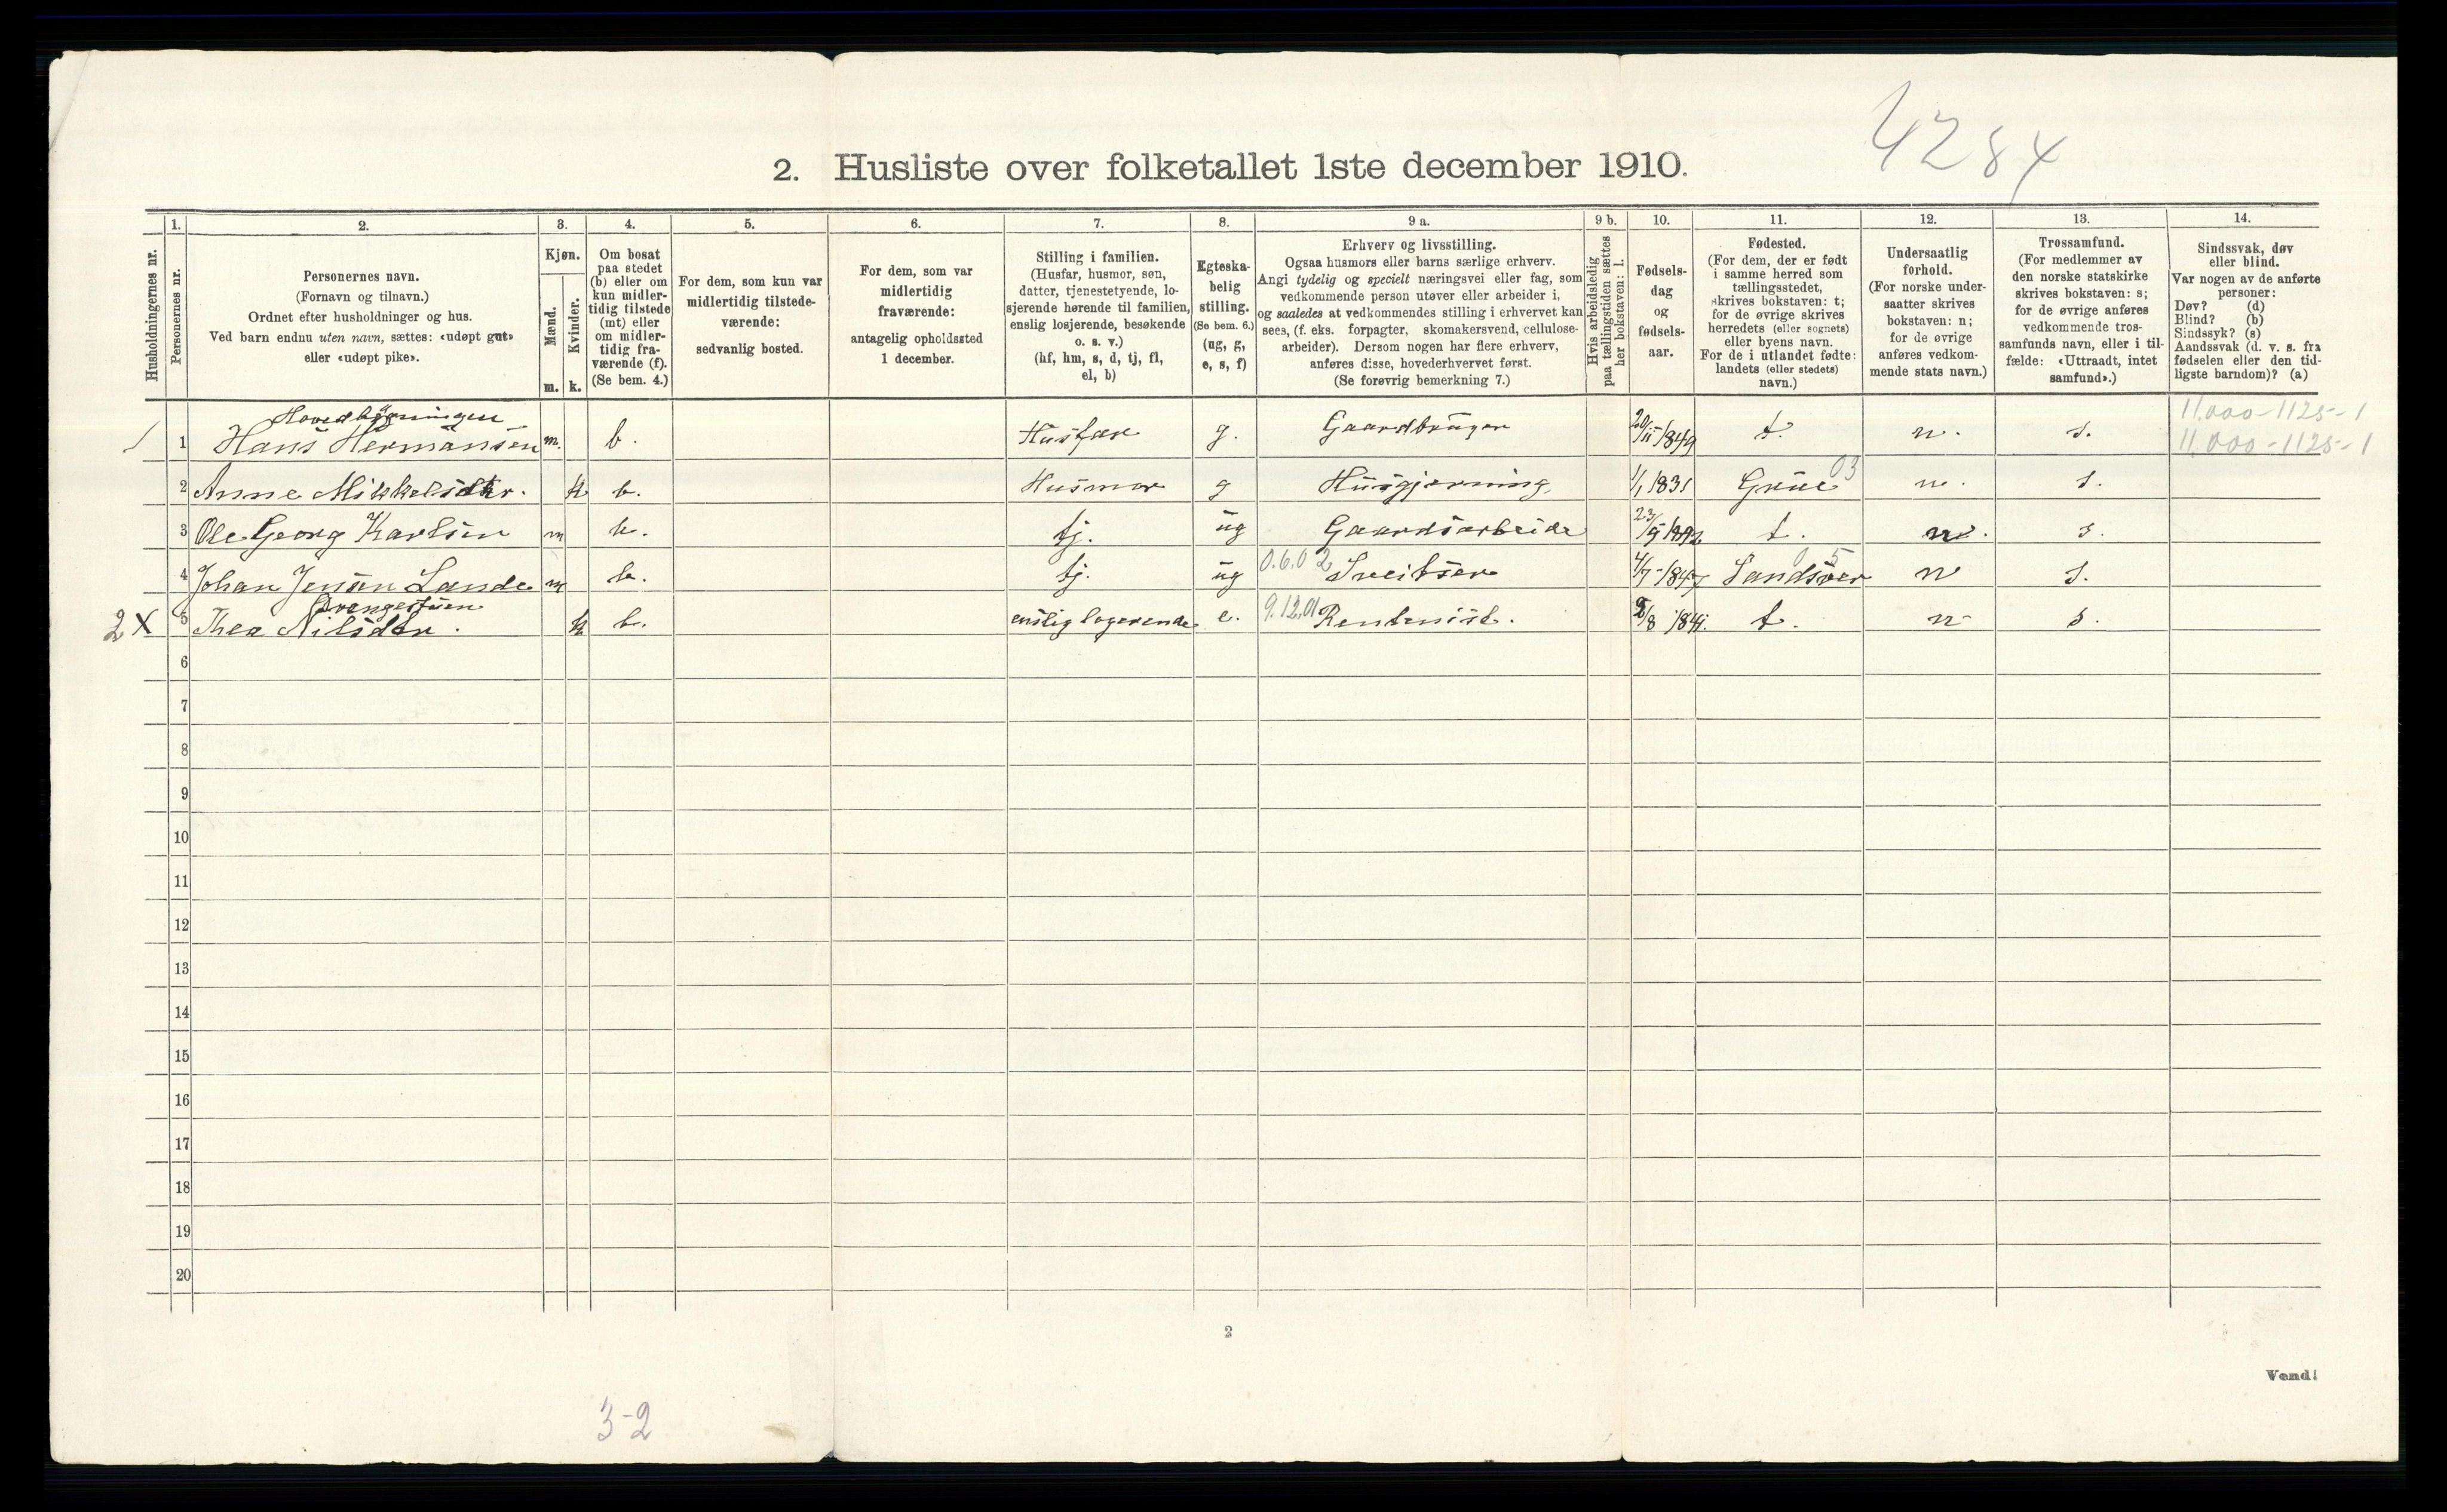 4284
2. Husliste over folketallet 1ste december 1910.
Husholdningernes nr.
1.
Personernes nr.
2.
Personernes navn.
(Fornavn og tilnavn.)
Ordnet efter husholdninger og hus.
Ved barn endnu uten navn, sættes: «udøpt gut»
eller «udøpt pike».
3.
Kjøn.
Mænd.
Kvinder.
m. k.
4.
Om bosat
paa stedet
(b) eller om
kun midler-
tidig tilstede
(mt) eller
om midler-
tidig fra-
værende (f).
(Se bem. 4.)
5.
For dem, som kun var
midlertidig tilstede-
værende:
sedvanlig bosted.
6.
For dem, som var
midlertidig
fraværende:
antagelig opholdssted
1 december.
7.
Stilling i familien.
(Husfar, husmor, søn,
datter, tjenestetyende, lo-
sjerende hørende til familien,
enslig losjerende, besøkende
o. s. v.)
(hf, hm, s, d, tj, fl,
el, b)
8.
Egteska-
belig
stilling.
(Se bem. 6.)
(ug, g,
e, s, f)
9 a.
Erhverv og livsstilling.
Ogsaa husmors eller barns særlige erhverv.
Angi tydelig og specielt næringsvei eller fag, som
vedkommende person utøver eller arbeider i,
og saaledes at vedkommendes stilling i erhvervet kan
sees, (f. eks. forpagter, skomakersvend, cellulose-
arbeider). Dersom nogen har flere erhverv,
anføres disse, hovederhvervet først.
(Se forøvrig bemerkning 7.)
9 b.
Hvis arbeidsledig
paa tællingstiden sættes
her bokstaven: l.
10.
Fødsels-
dag
og
fødsels-
aar.
11.
Fødested.
(For dem, der er født
i samme herred som
tællingsstedet,
skrives bokstaven: t;
for de øvrige skrives
herredets (eller sognets)
eller byens navn.
For de i utlandet fødte:
landets (eller stedets)
navn.)
12.
Undersaatlig
forhold.
(For norske under-
saatter skrives
bokstaven: n;
for de øvrige
anføres vedkom-
mende stats navn.)
13.
Trossamfund.
(For medlemmer av
den norske statskirke
skrives bokstaven: s;
for de øvrige anføres
vedkommende tros-
samfunds navn, eller i til-
fælde: «Uttraadt, intet
samfund».)
14.
Sindssvak, døv
eller blind.
Var nogen av de anførte
personer:
Døv? (d)
Blind? (b)
Sindssyk? (s)
Aandssvak (d. v. s. fra
fødselen eller den tid-
ligste barndom)? (a)
Hovedbygningen 11.000-1125-1
1 Hans Hermansen m. b. Husfar g. Gaardbruger 20/11 1849 t. n. s. 11.000-1125-1
2 Anne Mikkelsdtr. k b. Husmor g Husgjerning. 1/1 1831 Grue 03 n. s.
3 Ole Georg Karlsen m b. tj. ug Gaardsarbeide 23/9 1892 t. n. s.
4 Johan Jensen Lande m b. tj. ug 0.6.02 Sveitser 4/7 1847 Sandsvær 05 n s.
Drengestuen
2 X 5 Thea Nilsdtr. k b. enslig logerende e. 9.12.01 Rentenist. /8 1841. t. n s.
6
7
8
9
10
11
12
13
14
15
16
17
18
19
20
2
Vend!
3-2